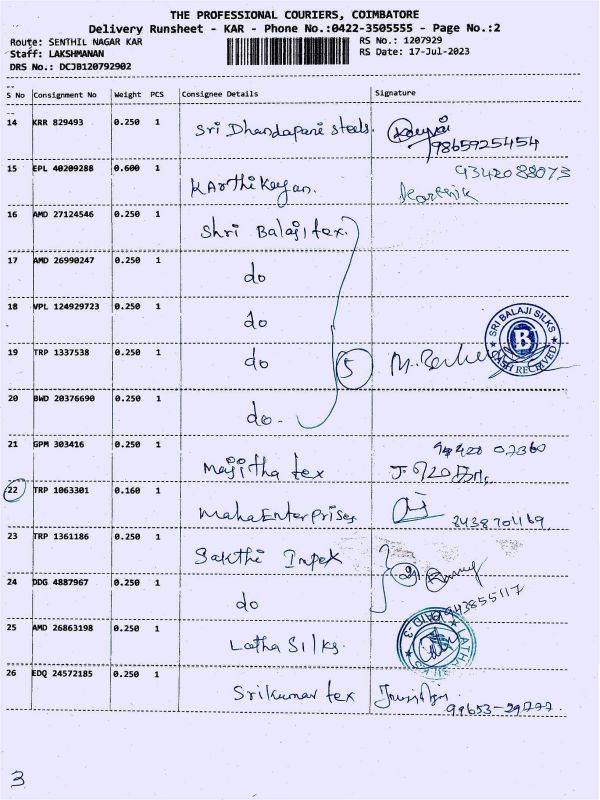 THE PROFESSIONAL COURIERS, COIMBATORE
Delivery Runsheet - KAR - Phone No.:0422-3505555 - Page No.:2
Route: SENTHIL NAGAR KAR
RS No.: 1207929
Staff: LAKSHMANAN
RS Date: 17-Jul-2023
DRS No.: DCJB120792902
S No Consignment No Weight PCS Consignee Details Signature
14 KRR 829493 0.250 1 Sri Dhandapani steels. 9865925454
15 EPL 40209288 0.600 1 KArthikeyan. 9342088073
Karthik
16 AMD 27124546 0.250 1 Shri Balaji tex.
17 AMD 26990247 0.250 1 do
18 VPL 124929723 0.250 1 do
SRI BALAJI SILKS
B
CASH RECEIVED
19 TRP 1337538 0.250 1 do 5
20 BWD 20376690 0.250 1 do-
21 GPM 303416 0.250 1 Majitha tex
22 TRP 1063301 0.160 1 MahaEnterprises 2438701169
23 TRP 1361186 0.250 1 Sakthi Impex
24 DDG 4887967 0.250 1 do
25 AMD 26863198 0.250 1 Latha Silks
LATHA
26 EDQ 24572185 0.250 1 Srikumar tex
99653-29777.
3